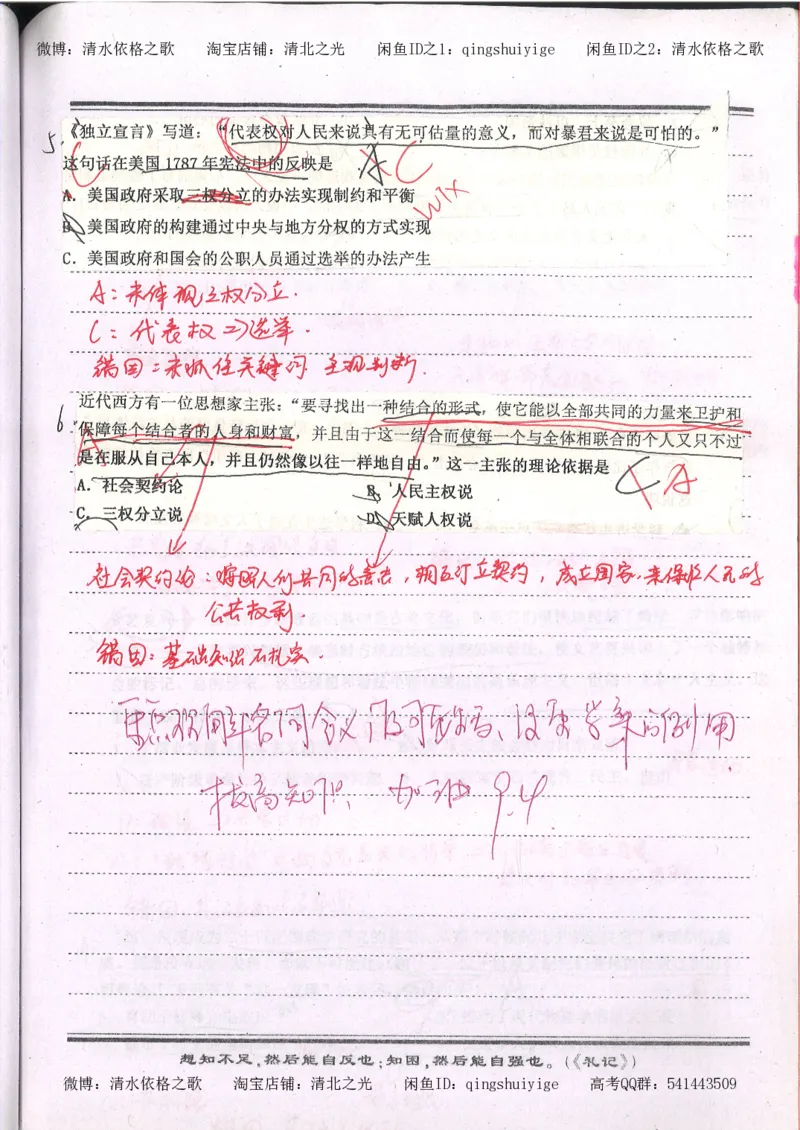 微博：清水依格之歌 淘宝店铺：清北之光 闲鱼ID之1：qingshuiyige 闲鱼ID之2：清水依格之歌
5.《独立宣言》写道：“代表权对人民来说具有无可估量的意义，而对暴君来说是可怕的。”
这句话在美国1787年宪法中的反映是 A C
C
A. 美国政府采取三权分立的办法实现制约和平衡
B. 美国政府的构建通过中央与地方分权的方式实现
C. 美国政府和国会的公职人员通过选举的办法产生
A：未体现三权分立.
C：代表权⇒选举.
错因：未抓住关键词 主观判断.
6 近代西方有一位思想家主张：“要寻找出一种结合的形式，使它能以全部共同的力量来卫护和
保障每个结合者的人身和财富，并且由于这一结合而使每一个与全体相联合的个人又只不过
是在服从自己本人，并且仍然像以往一样地自由。”这一主张的理论依据是 C A
A. 社会契约论 B. 人民主权说
C. 三权分立说 D. 天赋人权说
社会契约论：人们共同的意志，相互订立契约，成立国家，来保护人民的
公共权利
错因：基础知识不扎实.
提高知识，加油 9.4
想知不足，然后能自反也；知困，然后能自强也。（《礼记》）
微博：清水依格之歌 淘宝店铺：清北之光 闲鱼ID：qingshuiyige 高考QQ群：541443509